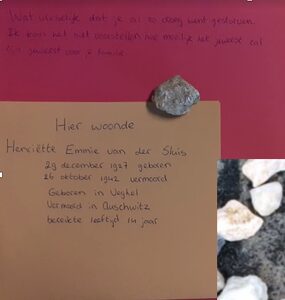 Wat vreselijk dat je al zo vroeg bent gestorven.
Ik kan het niet voorstellen hoe moeilijk het geweest zal
zijn geweest voor je familie.
Hier woonde
Henriëtte Emmie van der Sluis
29 december 1927 geboren
26 oktober 1942 vermoord
Geboren in Veghel
Vermoord in Auschwitz
bereikte leeftijd 14 jaar